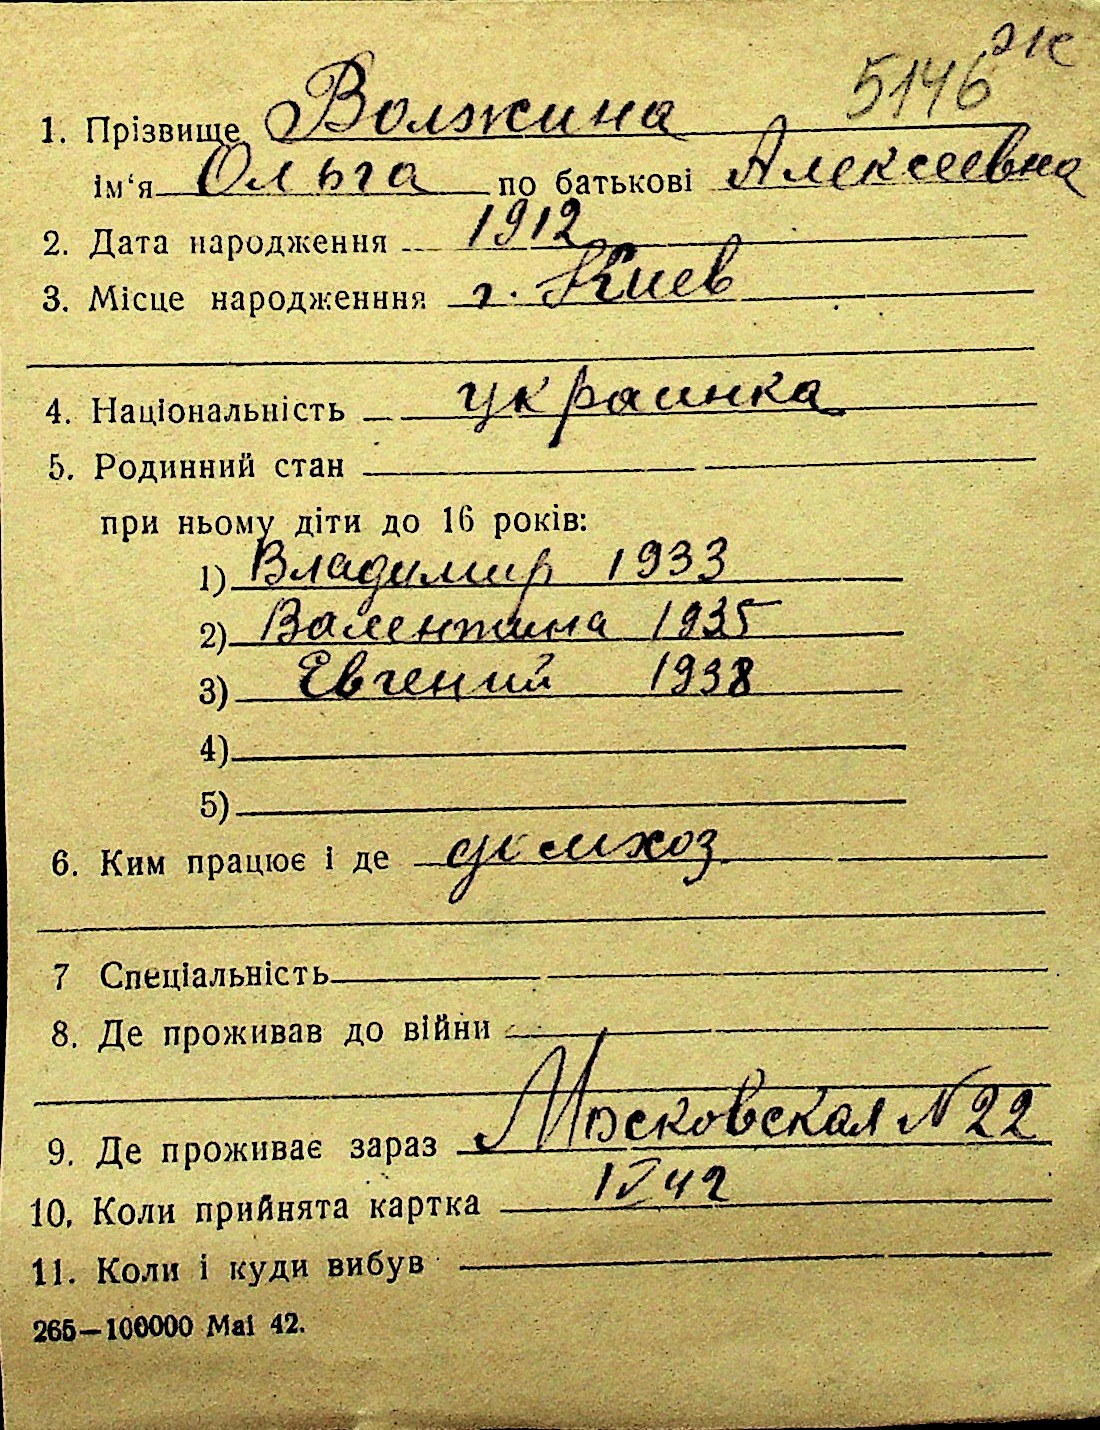 5146 Ж
1. Прізвище Волжина
ім‘я Ольга по батькові Алексеевна
2. Дата народження 1912
3. Місце народженння г. Киев
4. Національність украинка
5. Родинний стан
при ньому діти до 16 років:
1) Владимир 1933
2) Валентина 1935
3) Евгений 1938
4)
5)
6. Ким працює і де домхоз
7 Спеціальність
8. Де проживав до війни
9. Де проживає зараз Московская N 22
10. Коли прийнята картка
11. Коли і куди вибув
265—100000 Маі 42.